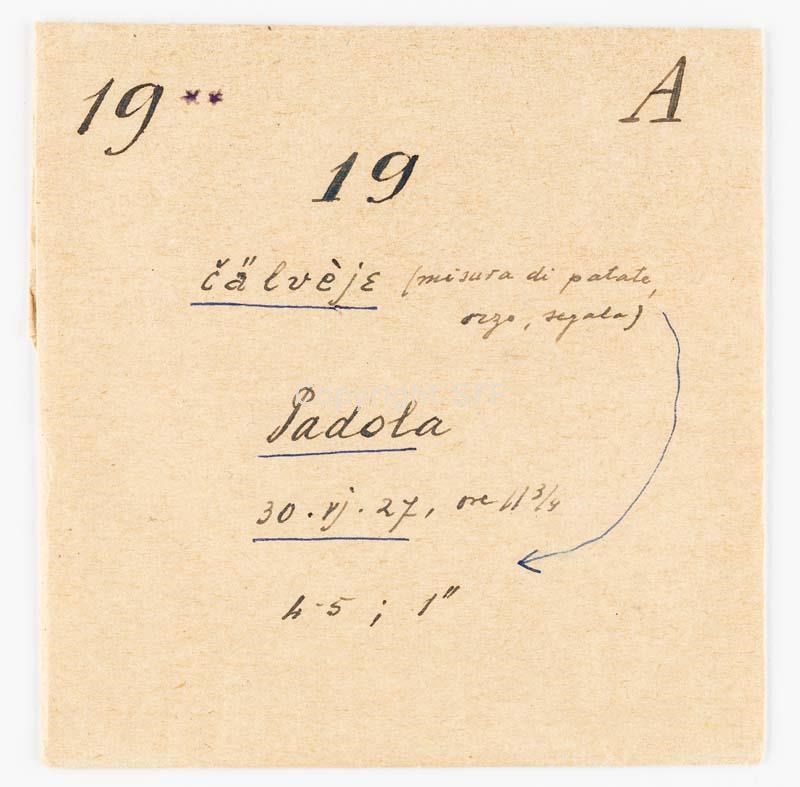 19 ** A
19
čä̀lvèjε (misura di patate,
orzo, segala)
Padola
30.vj.27, ore 11 3/4
4-5 ; 1"